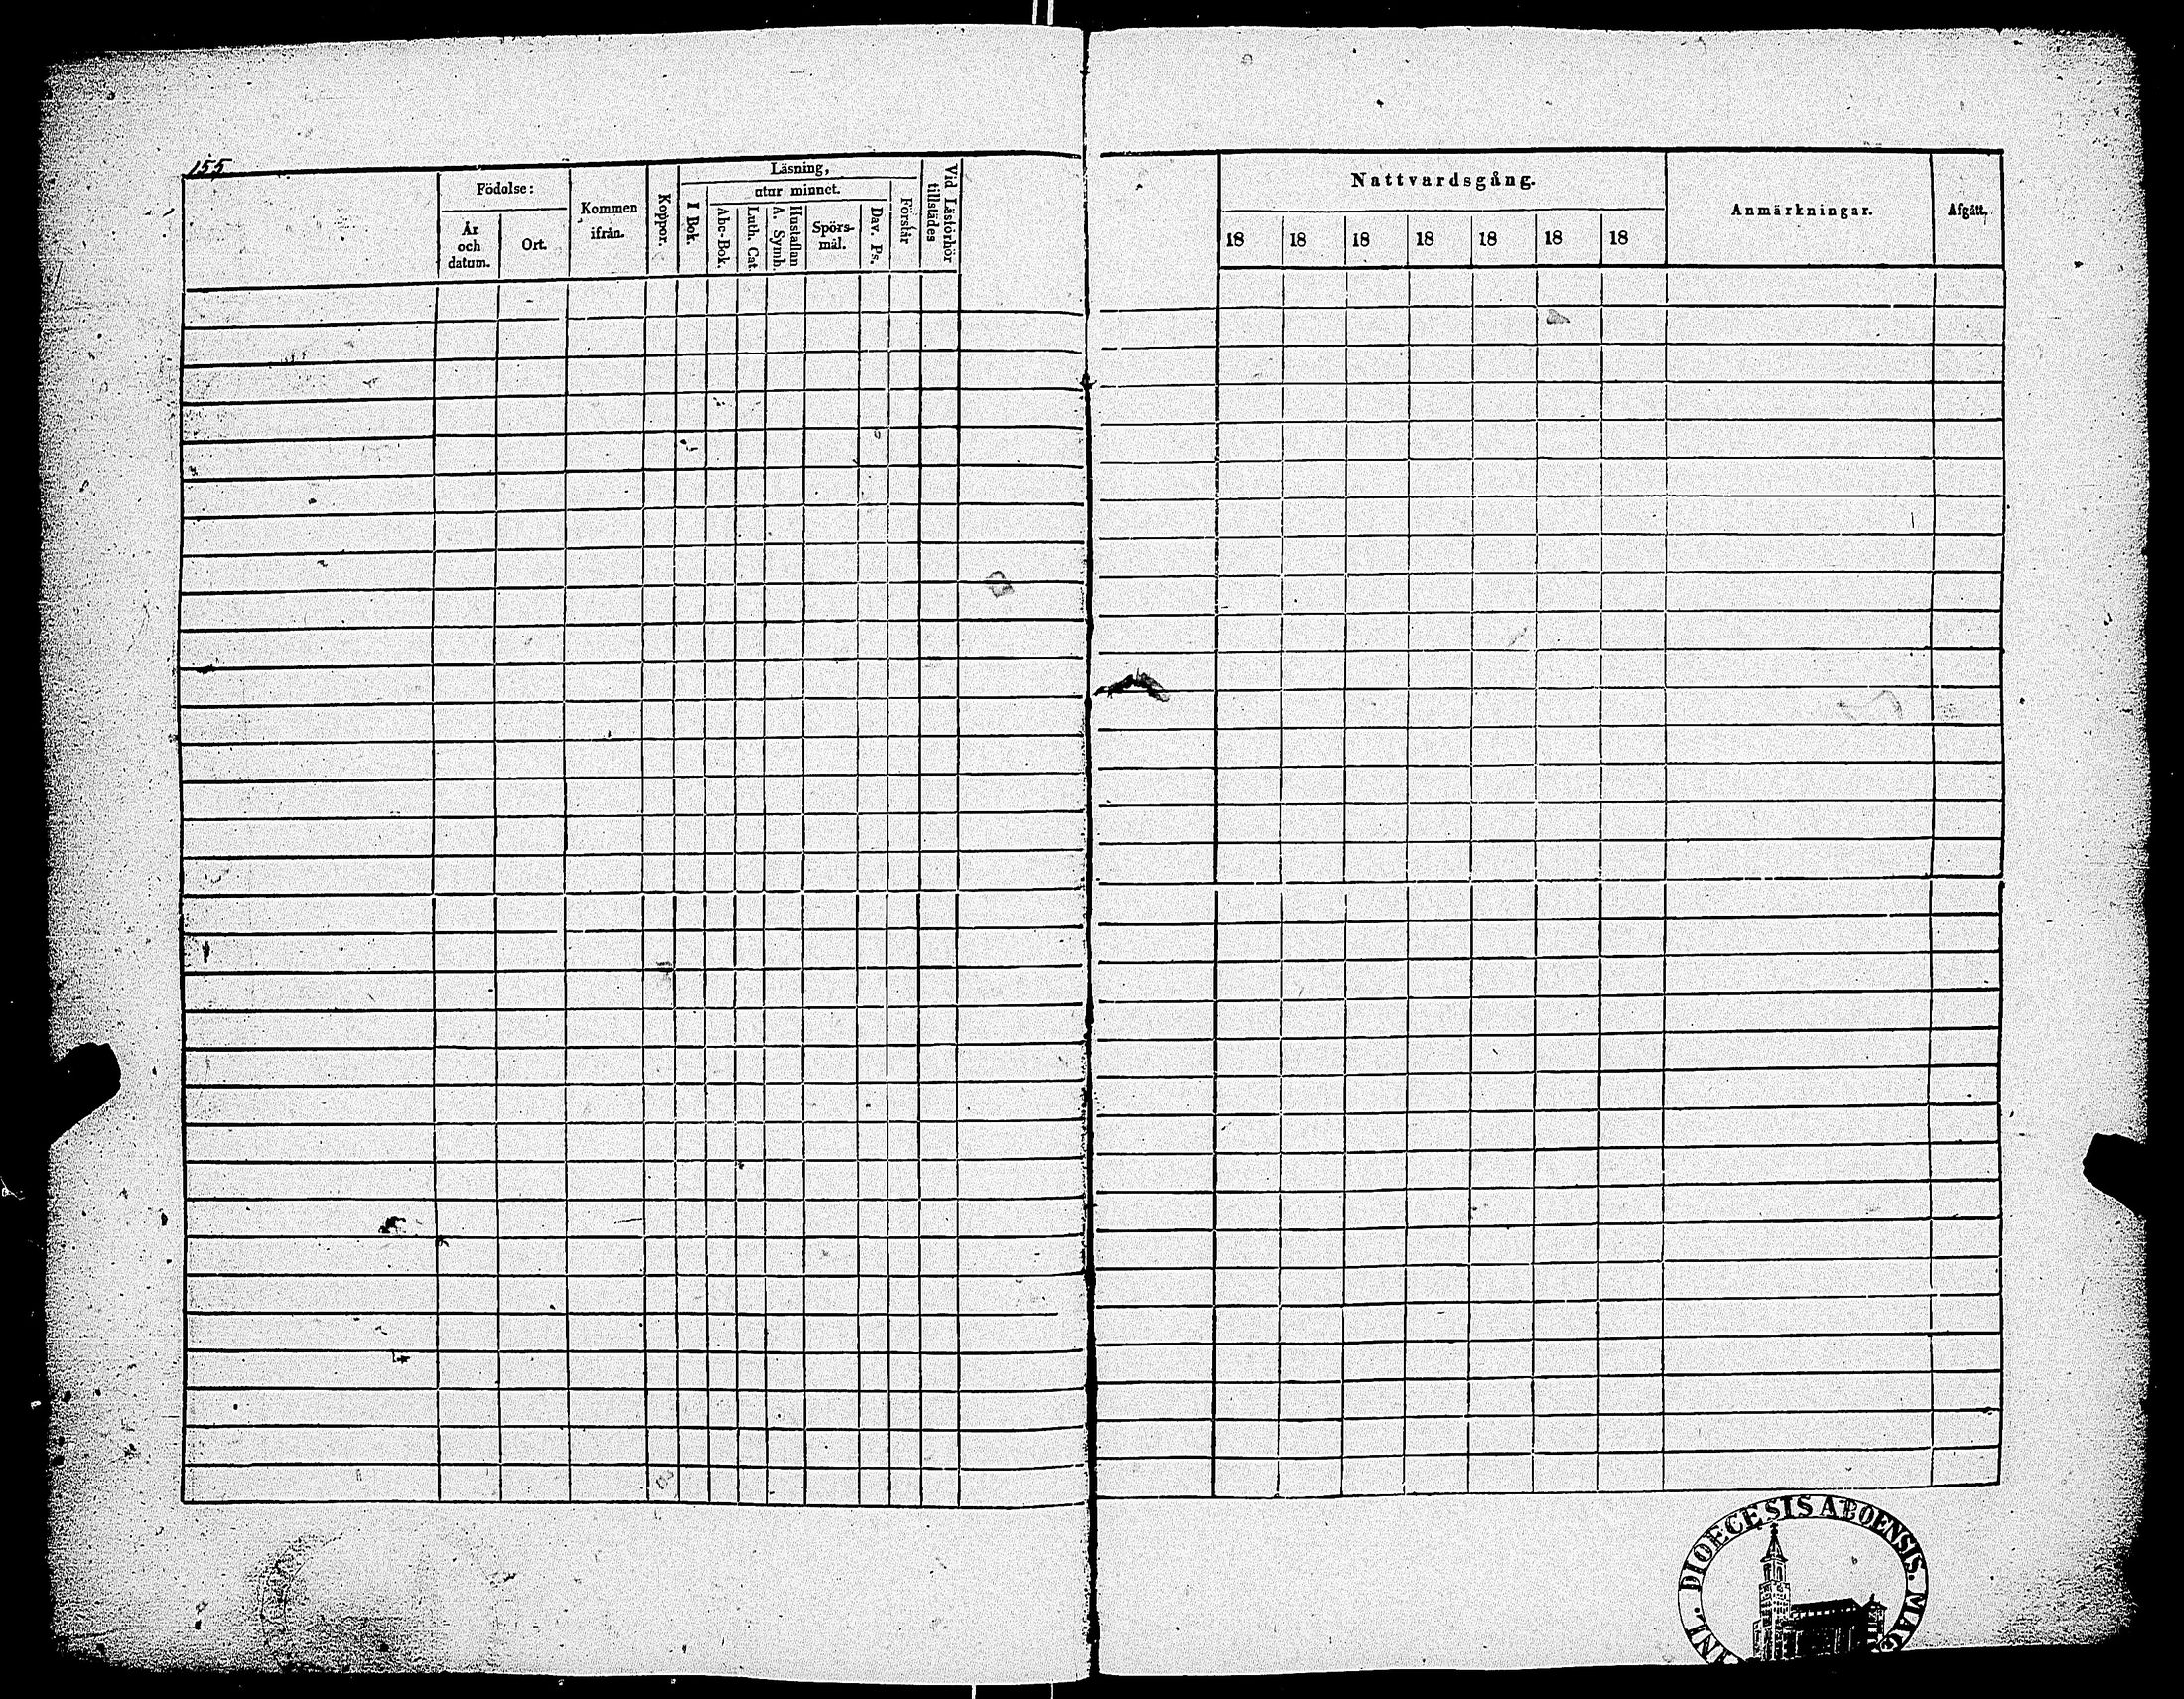 155
Födelse:
År och datum.
Ort.
Kommen ifrån.
Koppor.
Läsning,
I Bok.
utur minnet.
Abc-Bok.
Luth. Cat.
Hustaflan A. Symb.
Spörs-mål.
Dav. Ps.
Förstår
Vid Läsförhör tillstädes
Nattvardsgång.
18 18 18 18 18 18 18
Anmärkningar.
Afgått.
DIOECESIS ABOENSIS.